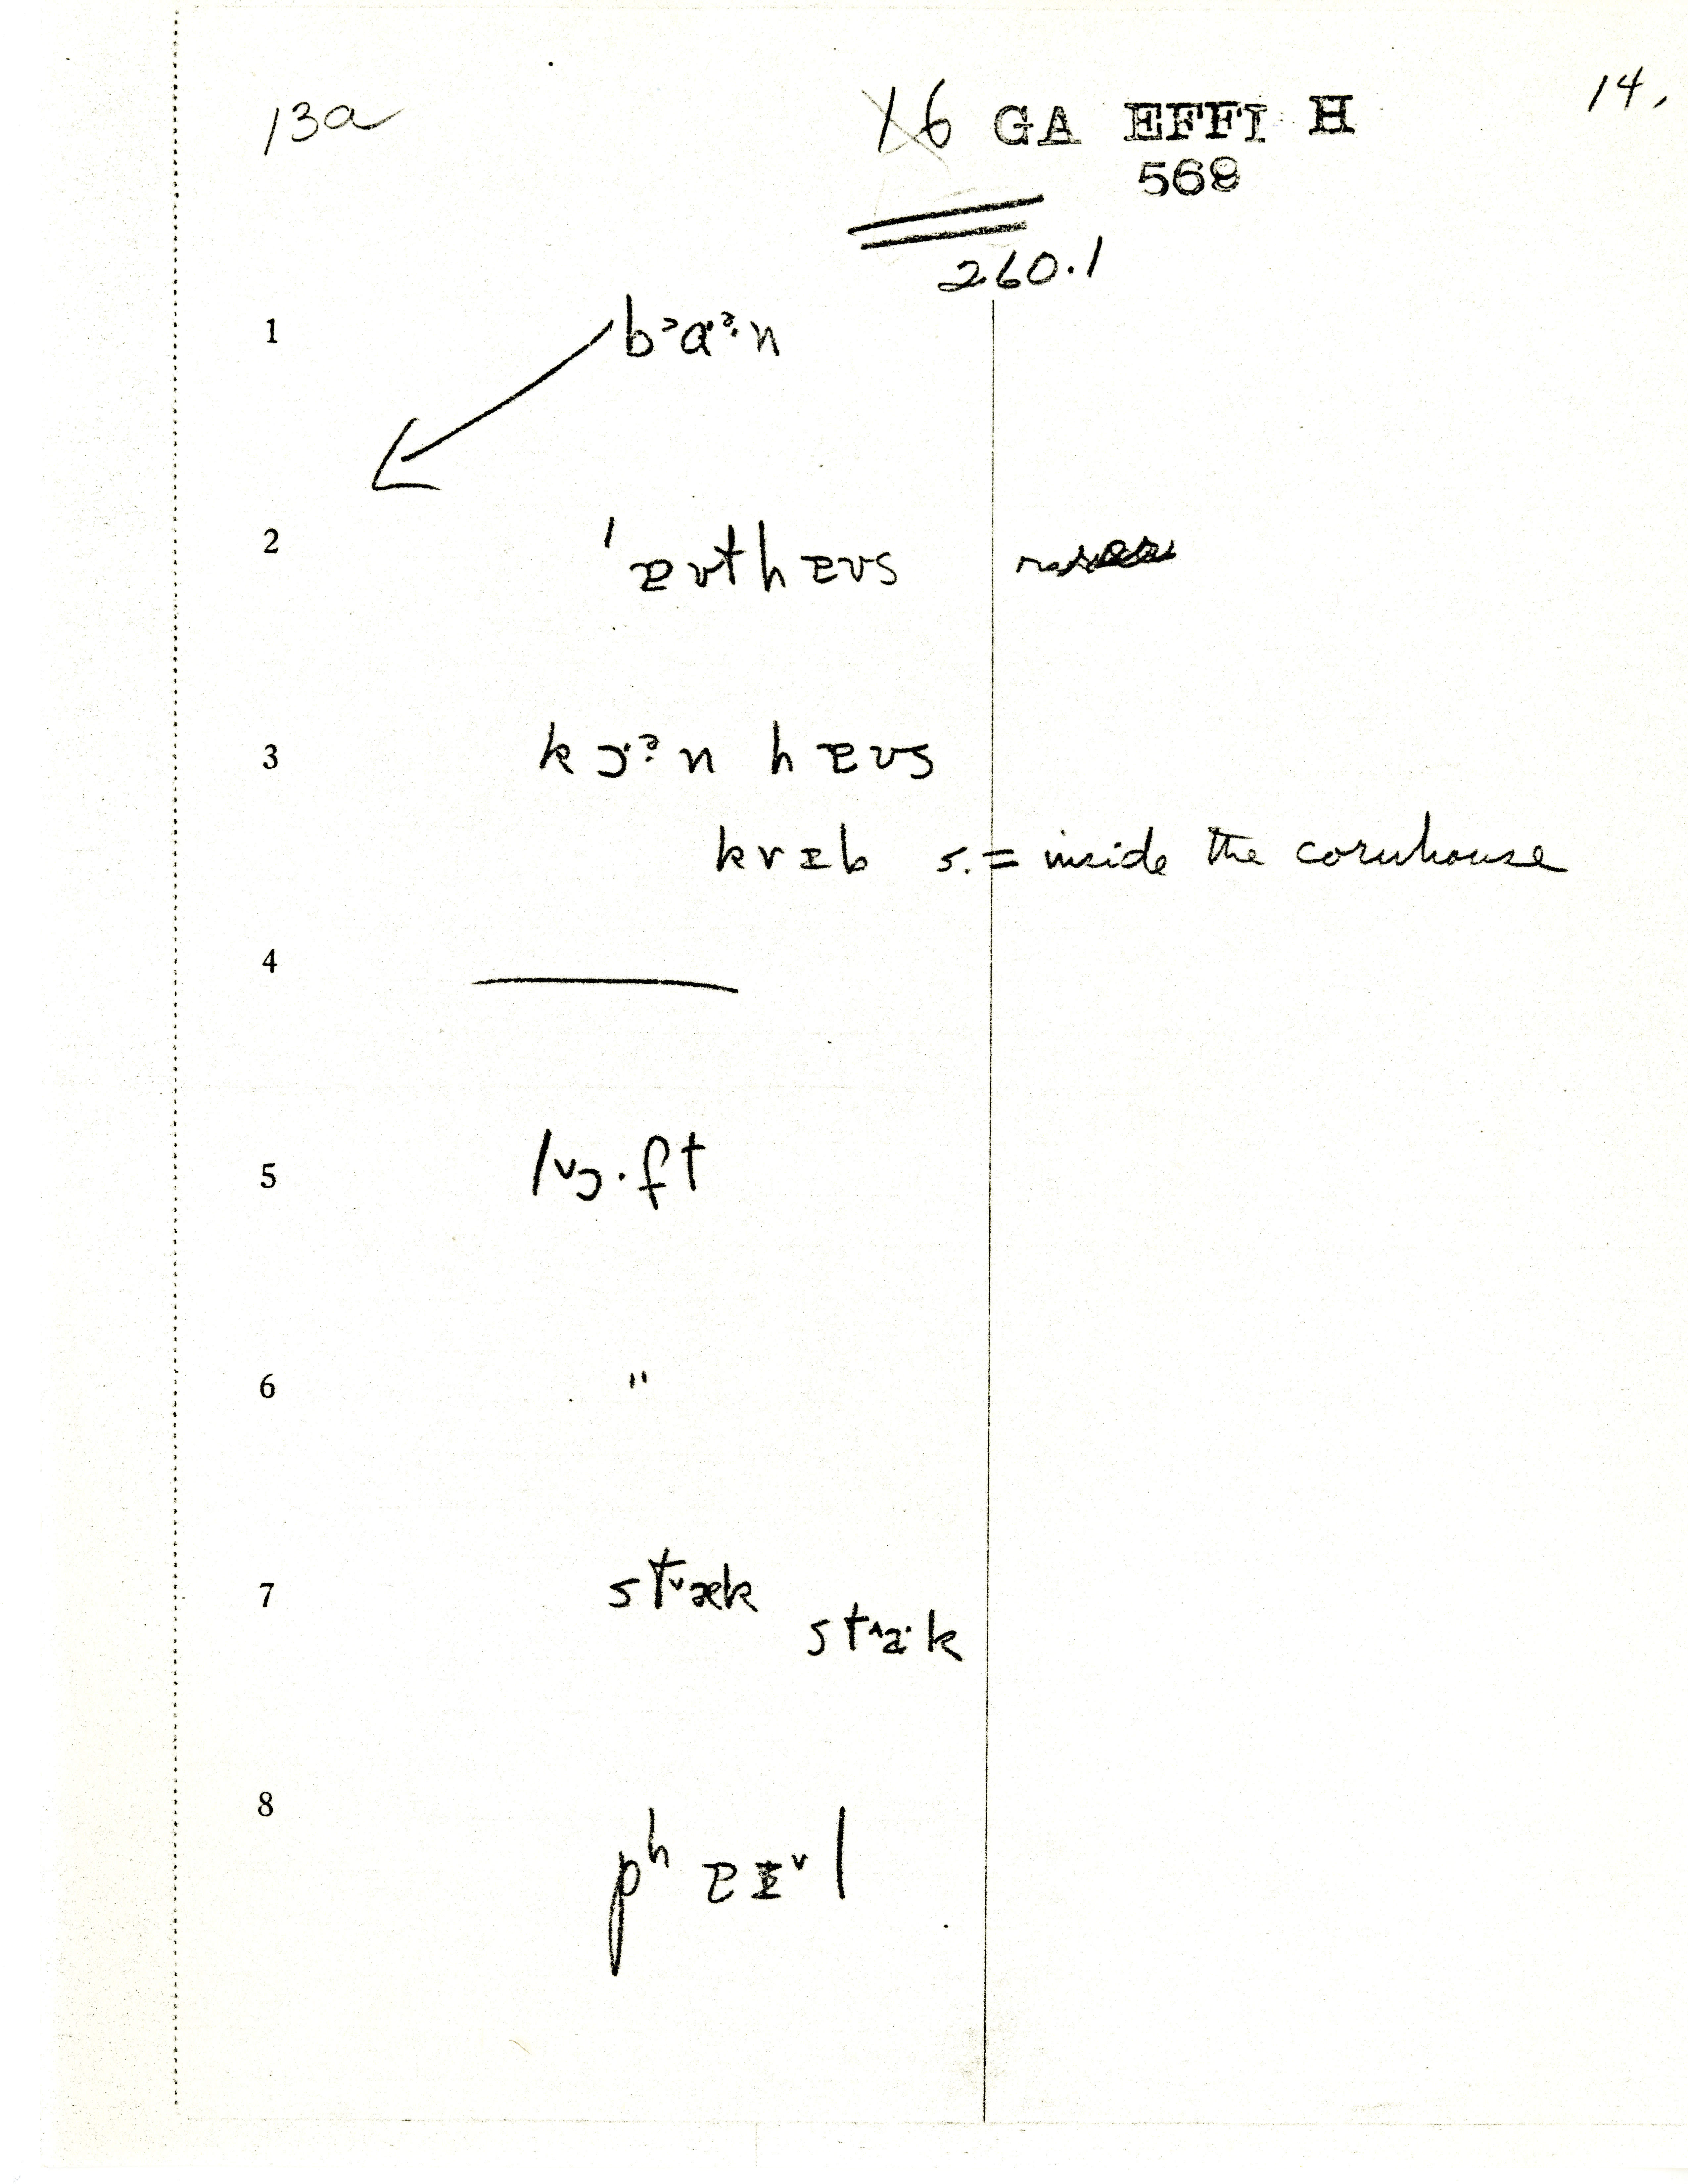 13a 16 GA EFFI H 14.
568
260.1
1 bᵊɑ·ᵊ·n
2 ˈɐʊthɐʊs
3 kɔ·ᵊ·n hɐʊs
krɪb s. = inside the cornhouse
4 ———
5 lᵛɔ·ft
6 "
7 stᵛæk
st^a·k
8 pʰɐɪᵛl